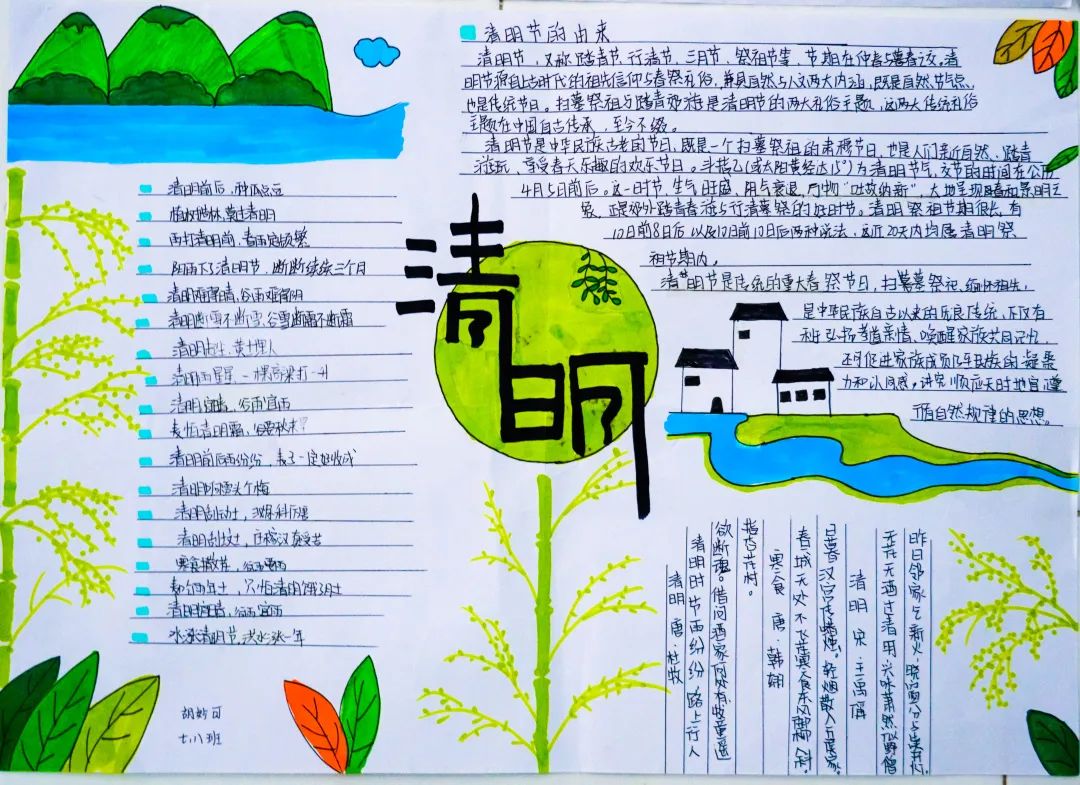 清明节的由来
清明节,又称踏青节、行清节、三月节、祭祖节等,节期在仲春与暮春之交。清
明节源自上古时代的祖先信仰与春祭礼俗,兼具自然与人文两大内涵,既是自然节气点,
也是传统节日。扫墓祭祖与踏青郊游是清明节的两大礼俗主题,这两大传统礼俗
主题在中国自古传承,至今不辍。
清明节是中华民族古老的节日,既是一个扫墓祭祖的肃穆节日,也是人们亲近自然、踏青
游玩、享受春天乐趣的欢乐节日。斗指乙(或太阳黄经达15°)为清明节气,交节的时间在公历
4月5日前后。这一时节,生气旺盛、阴气衰退,万物“吐故纳新”,大地呈现春和景明之
象,正是郊外踏青春游与行清墓祭的好时节。清明祭祖节期很长,有
10日前8日后以及10日前10日后两种说法,这近20天内均属清明祭
祖节期内。
清明节是传统的重大春祭节日,扫墓祭祀、缅怀祖先,
是中华民族自古以来的优良传统,不仅有
利于弘扬孝道亲情、唤醒家族共同记忆,
还可促进家族成员乃至民族的凝聚
力和认同感。讲究顺应天时地宜遵
循自然规律的思想。
清明
清明前后,种瓜点豆
植树造林,莫过清明
雨打清明前,春雨定频繁
阴雨下了清明节,断断续续三个月
清明难得晴,谷雨难得阴
清明断雪不断雪,谷雪断霜不断霜
清明雨星星,一棵高粱打一升
清明宜晴,谷雨宜雨
麦怕清明霜,谷要秋来
清明前后雨纷纷,麦子一定好收成
清明宜晴,谷雨宜雨
水涨清明节,洪水涨一年
胡妙可
七、八班
昨日邻家乞新火,晓窗分与读书灯。
无花无酒过清明,兴味萧然似野僧
清明 宋·王禹偁
日暮汉宫传蜡烛,轻烟散入五侯家。
春城无处不飞花,寒食东风御柳斜。
寒食 唐·韩翃
指杏花村。
欲断魂。借问酒家何处有,牧童遥
清明时节雨纷纷,路上行人
清明 唐·杜牧